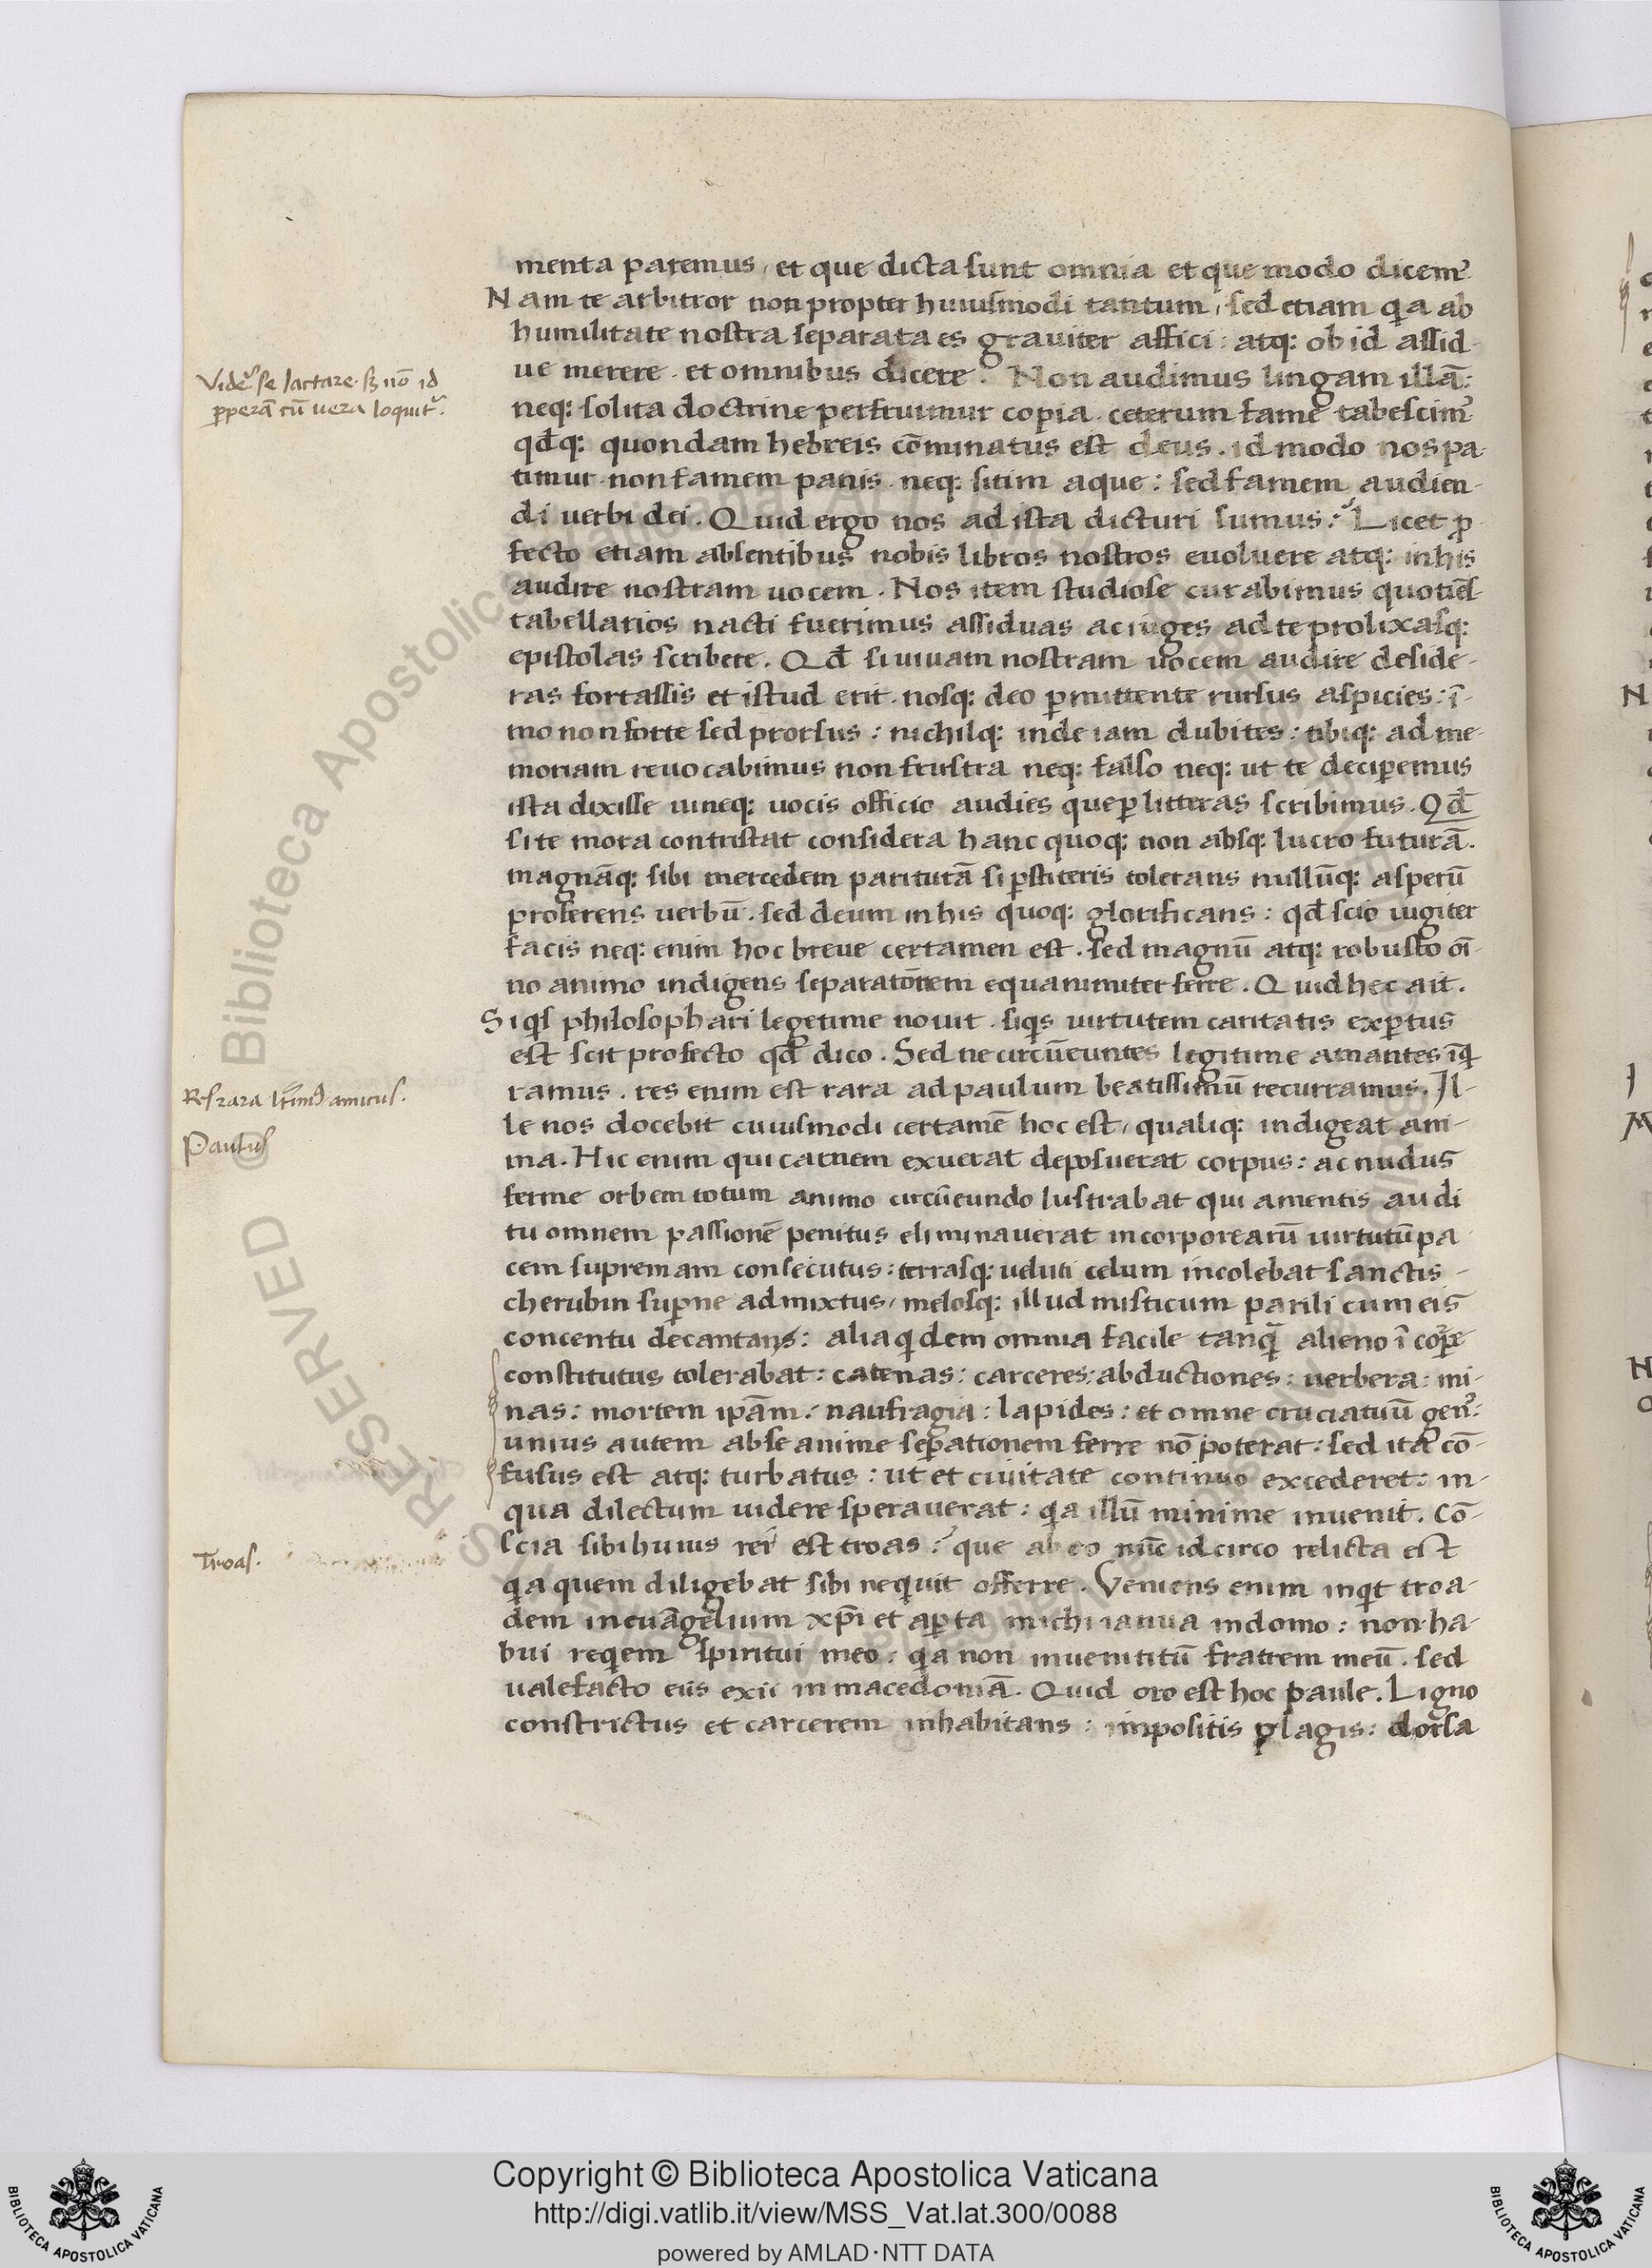 menta paremus, et que dicta sunt omnia et que modo dicemꝰ
Nam te arbitror non propter huiusmodi tantum, sed etiam qa ab
humilitate nostra separata es grauiter affici: atq: ob id assid-
ue merere. et omnibus dicere. Non audimus lingam illā:
neq: solita doctrine perfruimur copia. ceterum fame tabescimꝰ
qđq: quondam hebreis cōminatus est deus. id modo nos pa-
timur. non famem panis. neq: sitim aque: sed famem audien-
di uerbi dei. Quid ergo nos ad ista dicturi sumus? Licet ꝓ-
fecto etiam absentibus nobis libros nostros euoluere atq: in his
audire nostram uocem. Nos item studiose curabimus quotiēs
tabellarios nacti fuerimus assiduas ac iuges ad te prolixasq:
epistolas scribere. Qđ si uiuam nostram uocem audire deside-
ras fortassis et istud erit. nosq: deo ꝑmittente rursus aspicies: ī-
mo non forte sed prorsus: nichilq: inde iam dubites: tibiq: ad me-
moriam reuocabimus non frustra neq: falso neq: ut te deciperemus
ista dixisse uiueq: uocis officio audies que ꝑ litteras scribimus. Qđ
si te mora contristat considera hanc quoq: non absq: lucro futurā.
magnāq: sibi mercedem pariturā si ꝑstiteris tolerans nullūq: asperū
proferens uerbū. sed deum in his quoq: glorificans: qđ scio iugiter
facis neq: enim hoc breue certamen est. sed magnū atq: robusto oī-
no animo indigens separatōnem equanimiter ferre. Quid hec ait.
Siqs philosophari legetime nouit. siqs uirtutem caritatis exꝑtus
est scit profecto qđ dico. Sed ne circūeuntes legitime amantes īq-
ramus. res enim est rara ad paulum beatissimū recurramus. Il-
le nos docebit cuiusmodi certamē hoc est, qualiq: indigeat ani-
ma. Hic enim qui carnem exuerat deposuerat corpus: ac nudus
ferme orbem totum animo circūeundo lustrabat qui a mentis audi
tu omnem passionē penitus eliminauerat incorporearū uirtutū pa
cem supremam consecutus: terrasq: ueluti celum incolebat sanctis -
cherubin suꝑne admixtus, melosq: illud misticum parili cum eis
concentu decantans: alia qdem omnia facile tanq̄ alieno ī corꝑe
constitutus tolerabat: catenas: carceres: abductiones: uerbera: mi-
nas: mortem ipām: naufragia: lapides: et omne cruciatuū genꝰ:
unius autem ab se anime seꝑationem ferre nō poterat: sed ita cō-
fusus est atq: turbatus: ut et ciuitate continuo excederet: in-
qua dilectum uidere sperauerat: qa illū minime inuenit. Cō-
scia sibi huius rei est troas? que ab eo nūc idcirco relicta est
qa quem diligebat sibi nequit offerre. Veniens enim inqt troa-
dem in euāgelium xp̄i et aꝑta michi ianua in domo: non ha-
bui reqem spiritui meo: qa non inueni titū fratrem meū. sed
ualefacto eiis exii in macedoniā. Quid oro est hoc paule. Ligno
constrictus et carcerem inhabitans: impositis plagis: dorsa
Vidēr se lactare. sz nō id
ꝑperā cū uera loquitr.
Paulus
Troas.
Copyright © Biblioteca Apostolica Vaticana
http://digi.vatlib.it/view/MSS_Vat.lat.300/0088
powered by AMLAD·NTT DATA
BIBLIOTECA APOSTOLICA VATICANA
BIBLIOTECA APOSTOLICA VATICANA